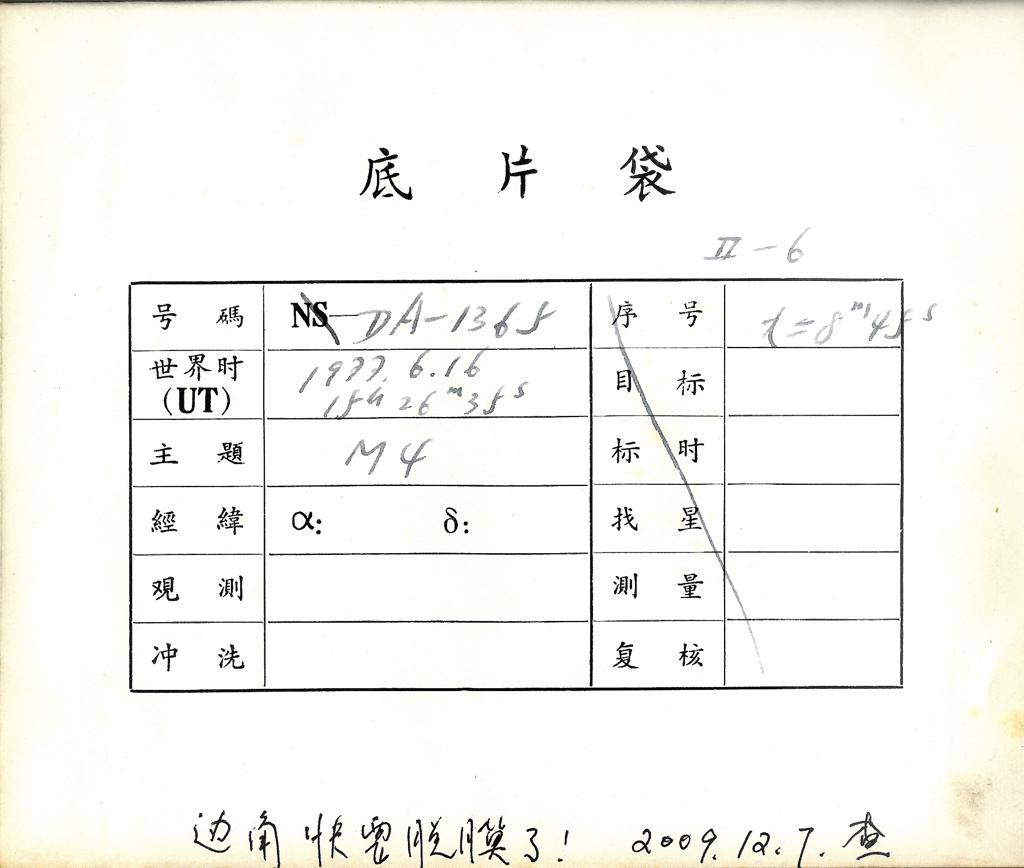 底片袋
II-6
号碼 NS-DA-1365 序号 t=8ᵐ45ˢ
世界时 (UT) 1977.6.16 15h26ᵐ35ˢ 目标
主題 M4 标时
經緯 α: δ: 找星
观測 測量
冲洗 复核
边角快要脱膜了! 2009.12.7.查